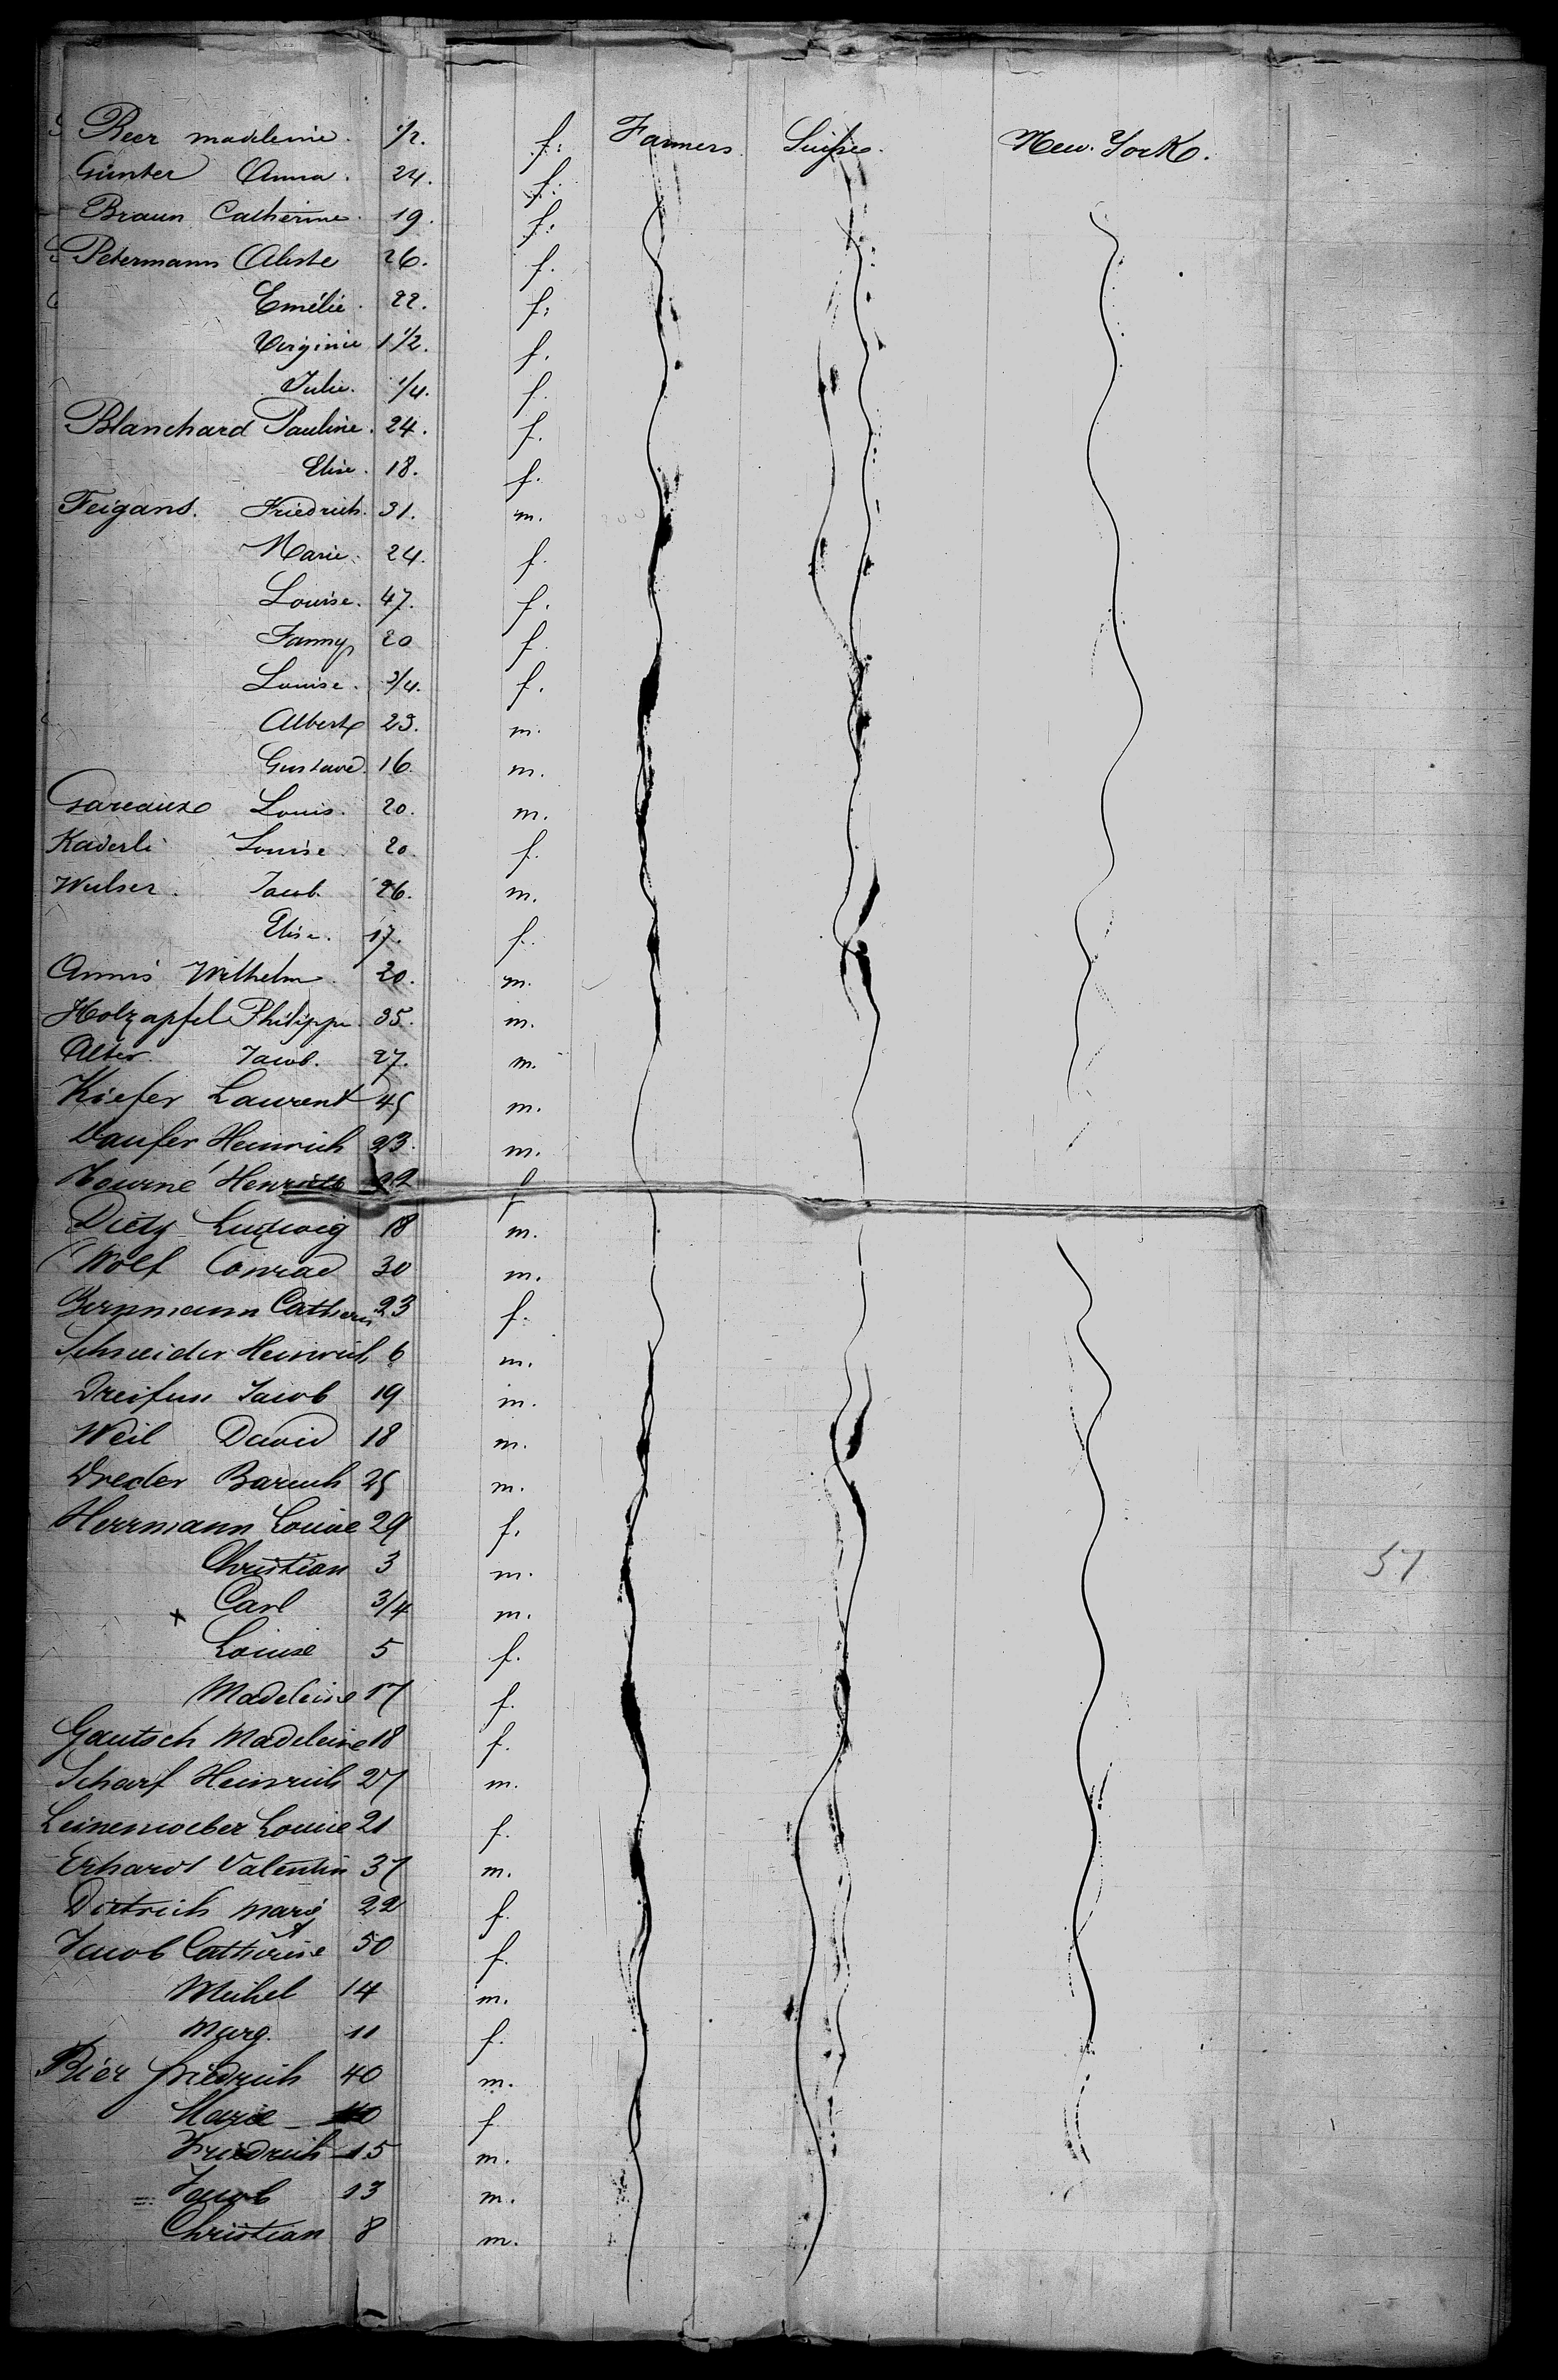 Beer madeleine. 1/2. f. Farmers Suisse. New. York.
Günter Anna. 24. f.
Braun Catherine. 19. f.
Petermann Celiste 26. f.
Emélie. 22. f.
Virginie 1 1/2. f.
Julie. 1/4. f.
Blanchard Pauline. 24. f.
Elise. 18. f.
Feigans. Friedrich. 31. m.
Marie. 24. f.
Louise. 47. f.
Fanny 20 f.
Louise. 3/4. f.
Albert 23. m.
Gustave. 16. m.
Gareaux Louis. 20. m.
Kaderli Louise. 20. f.
Wulser. Jacob. 26. m.
Elise. 17. f.
Annis Wilhelm. 20. m.
Holzapfel Philippe. 35. m.
Alter. Jacob. 27. m.
Kiefer Laurent 45 m.
Daufer Heinrich 23. m.
Henriette 22 f
Dietz Ludwig 18 m.
Wolf Conrad 30 m.
Catherin 23 f.
Schneider Heinrich 6 m.
Dreifuss Jacob 19 m.
Weil David 18 m.
Drexler Baruch 25 m.
Herrmann Louise 29 f.
Christian 3 m.
x Carl 3/4 m.
Louise 5 f.
Madeleine 17 f.
Gautsch Madeleine 18 f.
Scharf Heinrich 27 m.
Leineweber Louise 21 f.
Erhardt Valentin 37 m.
Dietrich Marie 22 f.
Jacob Catherine 50 f.
Michel 14 m.
Marg. 11 f.
Bier Friedrich 40 m.
Marie 40 f
Friedrich 15 m.
Jacob 13 m.
Christian 8 m.
57